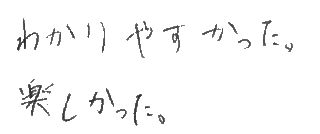 わかりやすかった。
楽しかった。